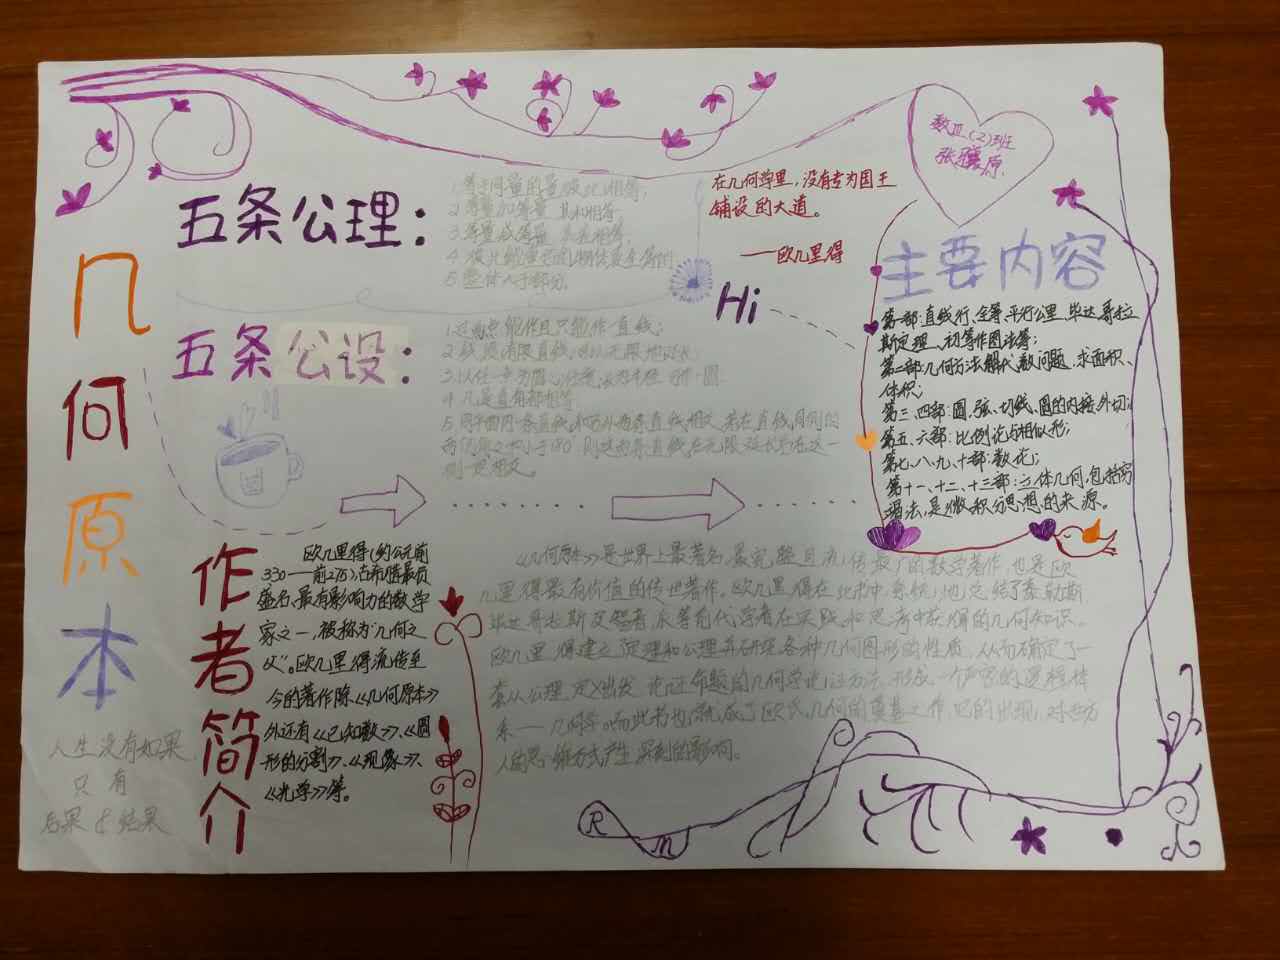 几何原本
五条公理：
1.等于同量的量彼此相等；
2.等量加等量，其和相等；
3.等量减等量，其差相等；
4.彼此能重合的物体是全等的
5.整体大于部分。
五条公设：
1.过两点能作且只能作一直线；
2.线段(有限直线)可以无限地延长
3.以任一点为圆心,任意长为半径,可作一圆
4.凡是直角都相等
5.同平面内一条直线和另外两条直线相交,若在直线同侧的
两内角之和小于180°,则这两条直线在无限延长后在这一
侧一定相交。
在几何学里，没有专为国王
铺设的大道。
——欧几里得
Hi
数Ⅲ(2)班
张骧原
主要内容
第一部:直线行、全等、平行公里、毕达哥拉
斯定理、初等作图法等；
第二部:几何方法解代数问题、求面积、
体积；
第三、四部:圆、弦、切线、圆的内接、外切；
第五、六部:比例论与相似形；
第七、八、九、十部:数论；
第十一、十二、十三部:立体几何,包括穷
竭法,是微积分思想的来源。
作者简介
欧几里得(约公元前
330——前275),古希腊最负
盛名、最有影响力的数学
家之一，被称为“几何之
父”。欧几里得流传至
今的著作除《几何原本》
外还有《已知数》、《圆
形的分割》、《现象》、
《光学》等。
《几何原本》是世界上最著名、最完整且流传最广的数学著作,也是欧
几里得最有价值的传世著作。欧几里得在此书中系统地总结了泰勒斯
毕达哥拉斯及智者派等前代学者在实践和思考中获得的几何知识。
欧几里得建立定理和公理并研究各种几何图形的性质，从而确定了一
套从公理、定义出发,论证命题的几何学论证方法,形成一个严密的逻辑体
系——几何学。而此书也就成了欧氏几何的奠基之作,它的出现,对西方
人的思维方式产生深刻的影响。
人生没有如果
只有
后果&结果
R
m